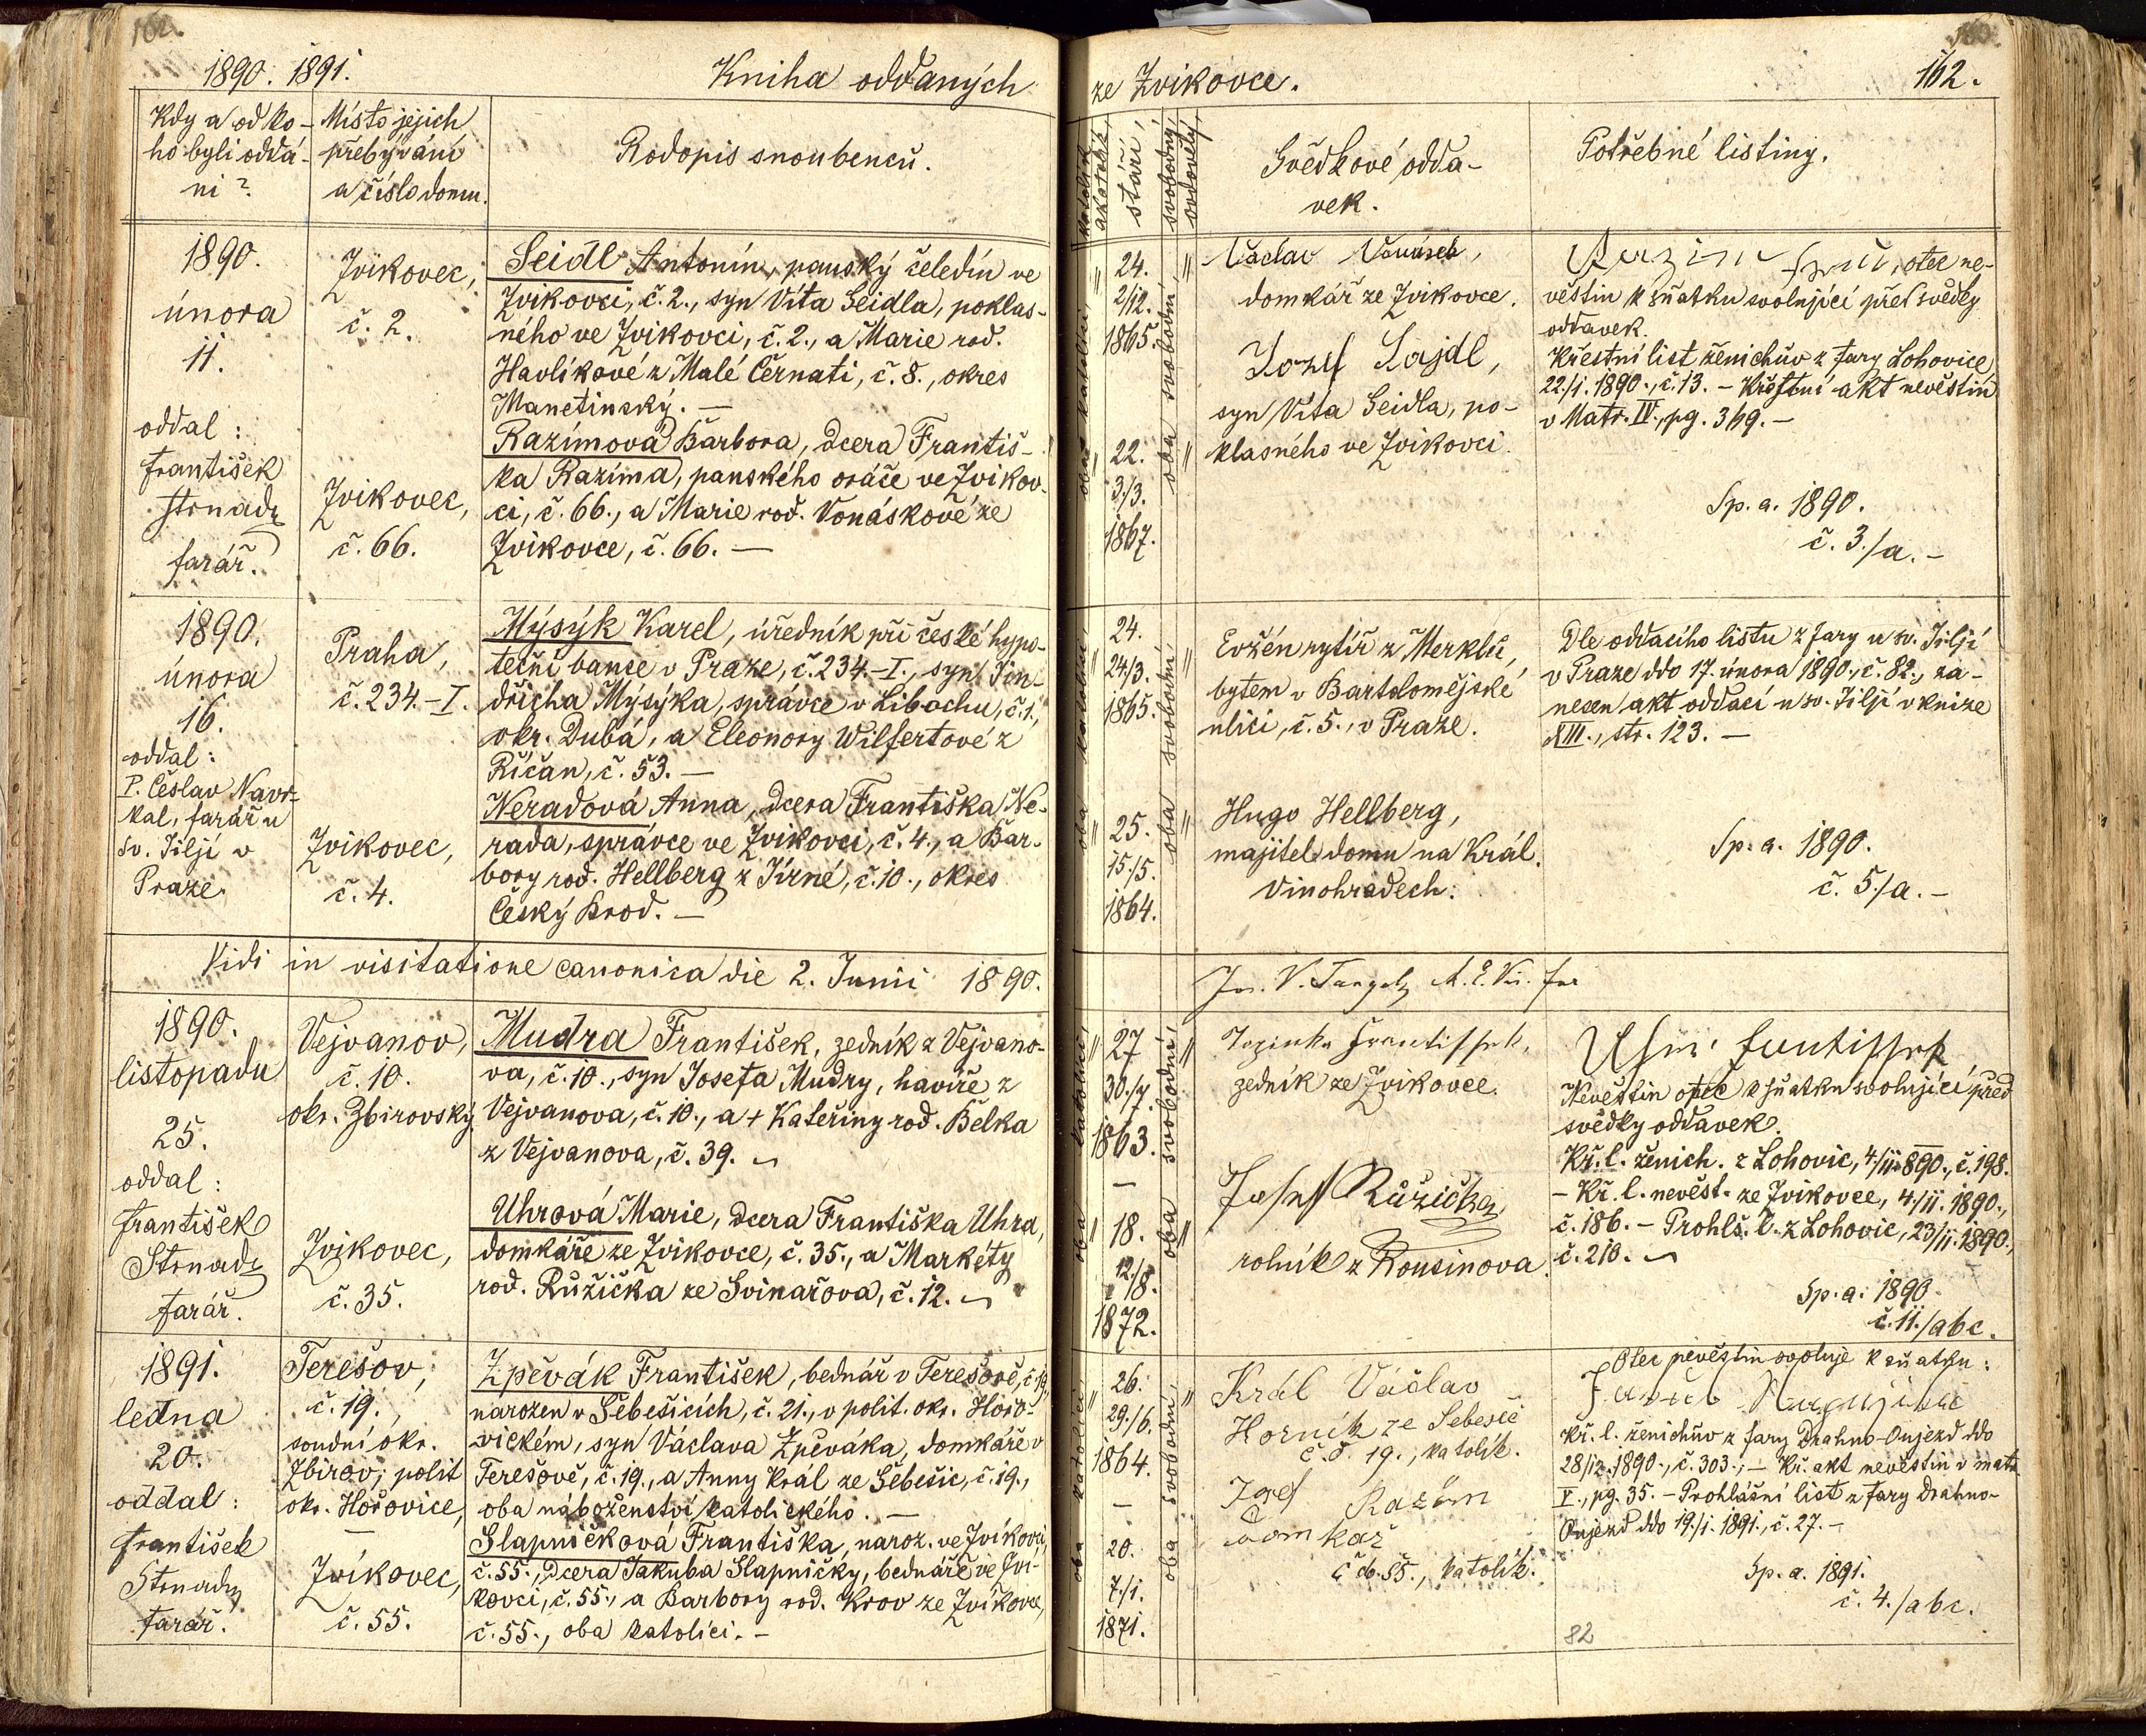 1890. 1891.
Kniha oddaných
Kdy a od ko-
ho byli oddá-
ni?
Místo jejich
přebývání
a číslo domu.
Rodopis snoubenců.
1890.
února
11.
oddal:
František
Strnady
farář.
Zvikovec,
č. 2.
Zvikovec,
č. 66.
Seidl Antonín, panský čeledín ve
Zvikovci, č. 2., syn Víta Seidla, poklas-
ného ve Zvikovci, č. 2., a Marie rod.
Havlíkové z Malé Černati, č. 8., okres
Manetínský. —
Razímová Barbora, dcera Františ-
ka Razíma, panského oráče ve Zvikov-
ci, č. 66., a Marie rod. Vonáskové ze
Zvikovce, č. 66. —
1890.
února
16.
oddal:
P. Česlav Navr-
kal, farář u
sv. Jiljí v
Praze.
Praha,
č. 234.-I.
Zvikovec,
č. 4.
Mýsýk Karel, úředník při české hypo-
teční bance v Praze, č. 234.-I., syn Jin-
dřicha Mýsýka, správce v Liběchu, č. 1.,
okr. Dubá, a Eleonory Wilfertové z
Říčan, č. 53. —
Neradová Anna, dcera Františka Ne-
rada, správce ve Zvikovci, č. 4., a Bar-
bory rod. Hellberg z Jírné, č. 10., okres
Český Brod. —
Vidi in visitatione canonica die 2. Junii 1890.
1890.
listopadu
25.
oddal:
František
Strnady
farář.
Vejvanov,
č. 10.
okr. Zbirovský
Zvikovec,
č. 35.
Mudra František, zedník z Vejvano-
va, č. 10., syn Josefa Mudry, havíře z
Vejvanova, č. 10., a + Kateřiny rod. Bělka
z Vejvanova, č. 39.
Uhrová Marie, dcera Františka Uhra,
domkáře ze Zvikovce, č. 35., a Markéty
rod. Růžička ze Svinařova, č. 12.
1891.
ledna
20.
oddal:
František
Strnady
farář.
Terešov,
č. 19.,
soudní okr.
Zbirov, polit
okr. Hořovice,
—
Zvíkovec,
č. 55.
Zpěvák František, bednář v Terešově, č. 19,
narozen v Šebešicích, č. 21., v polit. okr. Hořo-
vickém, syn Václava Zpěváka, domkáře v
Terešově, č. 19., a Anny Král ze Šebešic, č. 19.,
oba náboženství katolického. —
Slapničková Františka, naroz. ve Zvíkovci,
č. 55., dcera Jakuba Slapničky, bednáře ve Zvi-
kovci, č. 55., a Barbory rod. Krov ze Zvíkovce,
č. 55., oba katolíci. —
ze Zvikovce.
162.
stáří,
svobodný,
ovdovělý,
Svědkové odda-
vek.
Potřebné listiny.
24.
2/12.
1865.
22.
3/3.
1867.
oba svobodni
Václav Vonásek,
domkář ze Zvikovce.
Jozef Sajdl,
syn Víta Seidla, po-
klasného ve Zvikovci.
otec ne-
věstin k sňatku svolující před svědky
oddavek.
Křestní list ženichův z fary Lohovice,
22./1. 1890., č. 13. — Křestní akt nevěstin
v Matr. IV., pg. 369. —
Sp. a. 1890.
č. 3./a. —
24.
24/3.
1865.
25.
15./5.
1864.
oba katolíci
oba svobodni
Evžén rytíř z Merklů,
bytem v Bartolomějské
ulici, č. 5., v Praze.
Hugo Hellberg,
majitel domu na Král.
Vinohradech.
Dle oddacího listu z fary u sv. Jiljí
v Praze ddo 17. února 1890., č. 82., za-
nesen akt oddací u sv. Jiljí v knize
XIII., str. 123. —
Sp. a. 1890.
č. 5./a. —
27
30./7.
1863.
—
18.
12/8.
1872.
oba katolíci
oba svobodni
zedník ze Zvikovce.
Josef Růžička,
rolník z Kousinova.
Nevěstin otec k sňatku svolující před
svědky oddavek.
Kř. l. ženich. z Lohovic, 4/11 890., č. 198.
— Kř. l. nevěst. ze Zvikovce, 4./11. 1890.,
č. 186. — Prohlš. l. z Lohovic, 23/11. 1890.,
č. 210.
Sp. a. 1890.
č. 11./abc.
26.
29./6.
1864.
—
20.
7./1.
1871.
oba katolíci
oba svobodni
Král Václav
Horník ze Sebesic
č. d. 19., katolík.
Josef Razím
domkář
č. d. 85., katolík.
Otec nevěstin svoluje k sňatku:
Kř. l. ženichův z fary Drahno-Oujezd ddo
28/12. 1890., č. 303., — Kř. akt nevěstin v matr.
V., pg. 35. — Prohlášní list z fary Drahno-
Oujezd ddo 19./1. 1891., č. 27. —
Sp. a. 1891.
č. 4./abc.
82